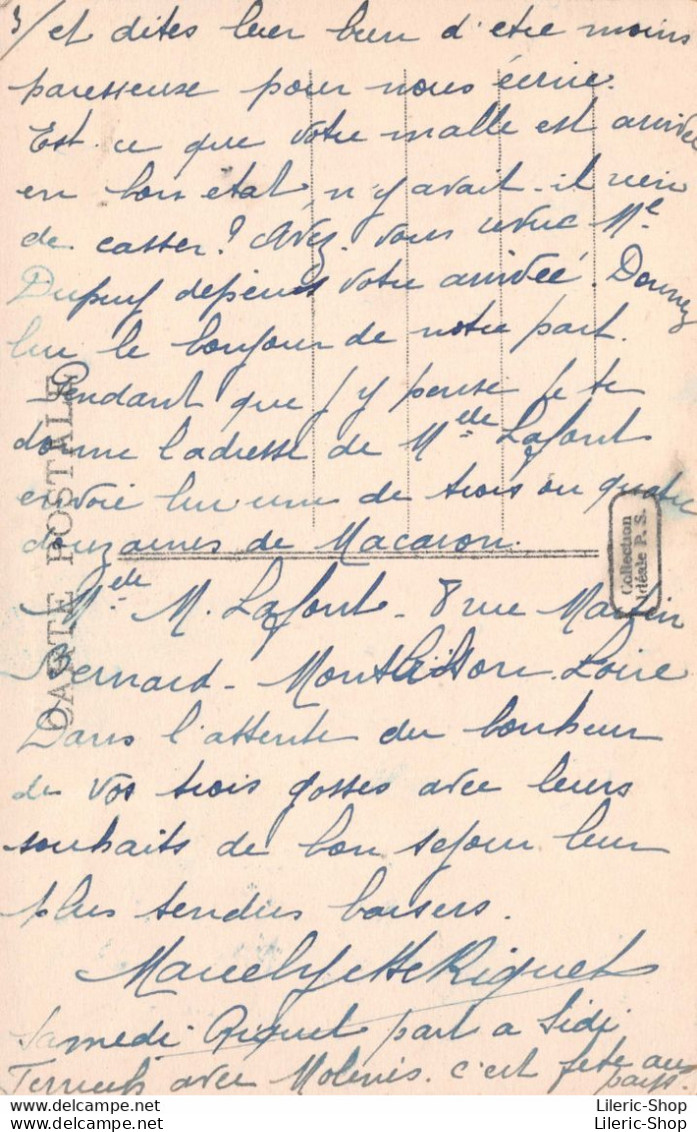 3/ et dites leur bien d'etre moins
paresseuse pour nous écrire.
Est. ce que votre malle est arrivée
en bon etat n'y avait-il rien
de casser? Avez-vous revue Me
Dupuy depuis votre arrivée. Donnez
lui le bonjour de notre part.
Pendant que j'y pense je te
donne l'adresse de Melle Lafont
envoie lui une de trois ou quatre
douzaines de Macaron.
Melle M. Lafont - 8 rue Martin
Bernard - Montbrison. Loire
Dans l'attente du bonheur
de vos trois gosses avec leurs
souhaits de bon sejour leur
plus tendres baisers.
Marcel Riquet
Samedi Riquet part a Sidi
avec c'est fete au
pays.
CARTE POSTALE
Collection
Idéale P. S.
Lileric-Shop
Lileric-Shop
Lileric-Shop
Lileric-Shop